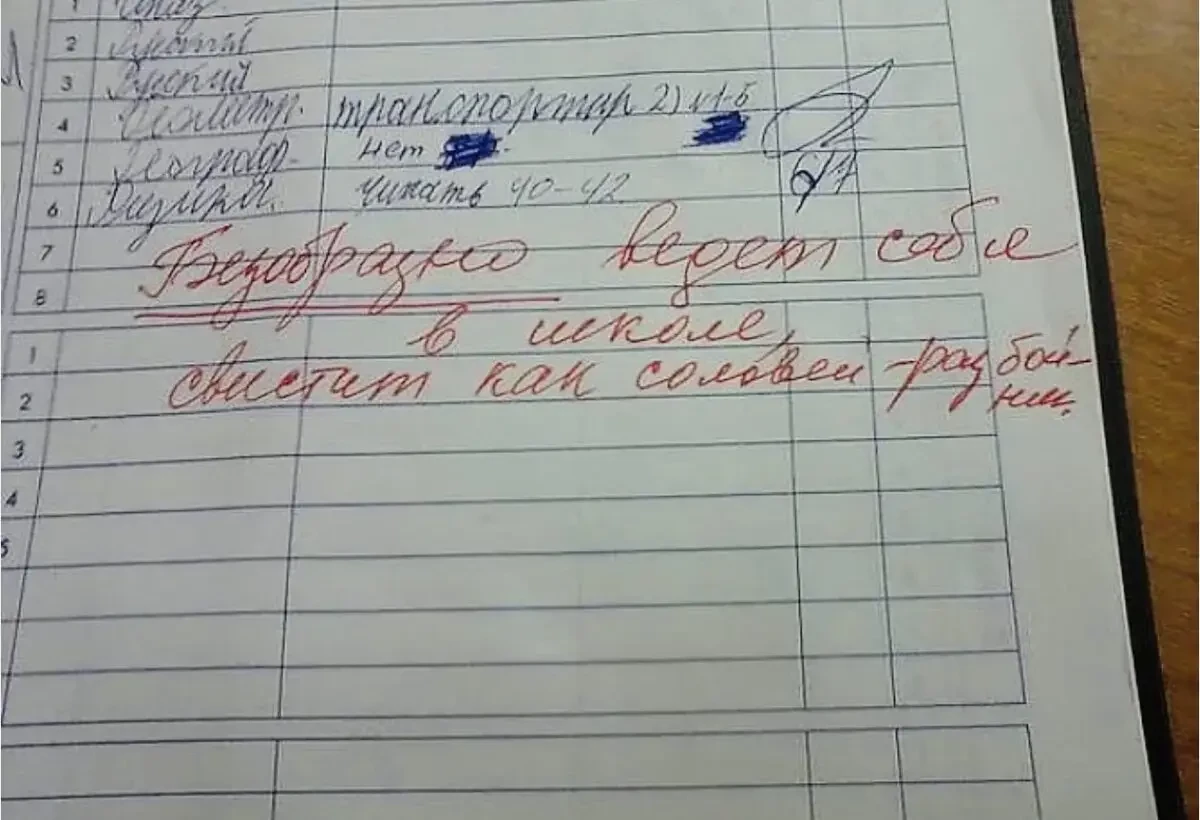 1
2
3 Русский
4 Геометр. транспортир 2) п1-5
5 Географ. нет
6 Физика. Читать 40-42
7 Безобразно ведет себя
8
1 в школе,
2 свистит как соловей-разбой-
ник.
3
4
5